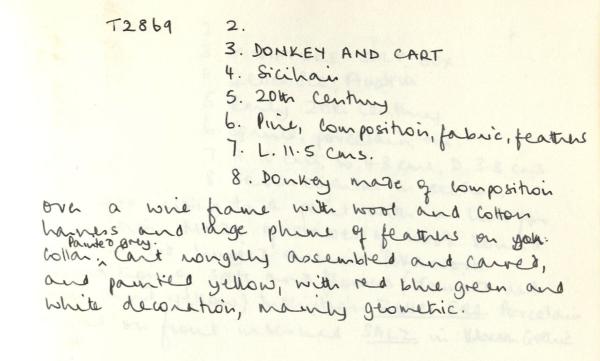 T2869 2.
3. DONKEY AND CART
4. Sicilian
5. 20th Century
6. Pine, Composition, fabric, feathers
7. L. 11.5 cms.
8. Donkey made of composition
over a wire frame with wool and cotton
harness and large plume of feathers on
Painted grey.
collar. Cart roughly assembled and carved,
and painted yellow, with red blue green and
white decoration, mainly geometric.